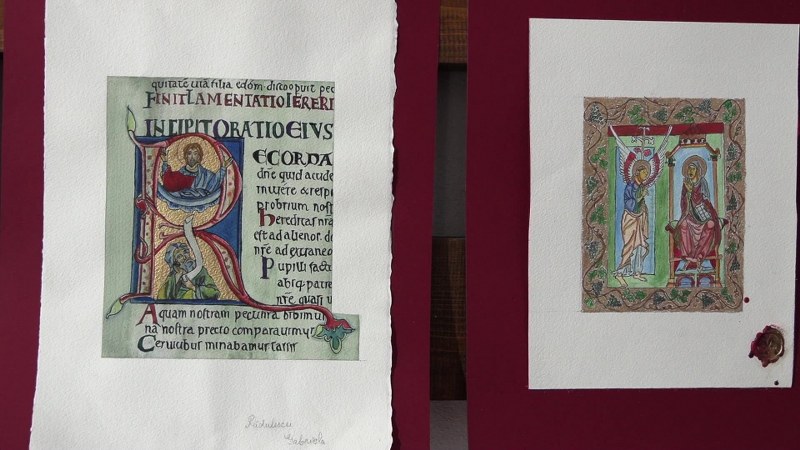 quitate tua filia edom discoopuit pec
FINIT LAMENTATIO IEREMI
INCIPIT ORATIO EIVS
R
ECORDA
dñe quid accide
intuere & respi
probrium nost
hereditas nra
est ad alienos do
nre ad extraneo
Pupilli facti
absq patre
nre quasi v
Aquam nostram pecunia bibimus
na nostra precio comparauimus
Ceruicibus minabamur
Rădulescu
Gabriela